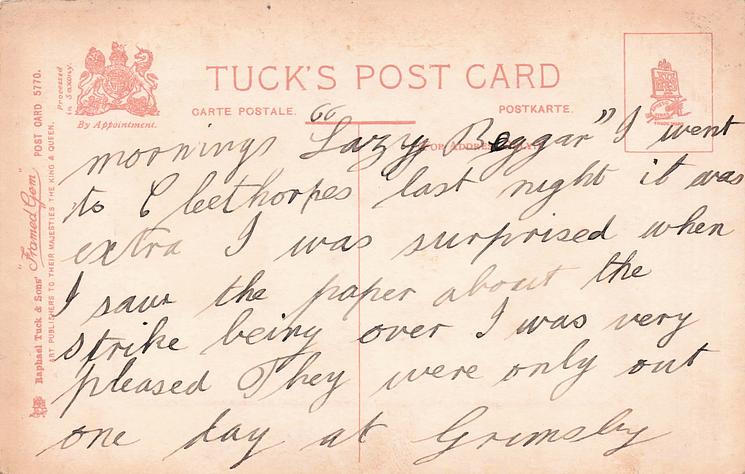 TUCK'S POST CARD
CARTE POSTALE.
POSTKARTE.
By Appointment.
Processed in Saxony.
Raphael Tuck & Sons' "Framed Gem" POST CARD 5770.
ART PUBLISHERS TO THEIR MAJESTIES THE KING & QUEEN.
mornings "Lazy Beggar" I went
to Cleethorpes last night it was
extra I was surprised when
I saw the paper about the
strike being over I was very
pleased They were only out
one day at Grimsby